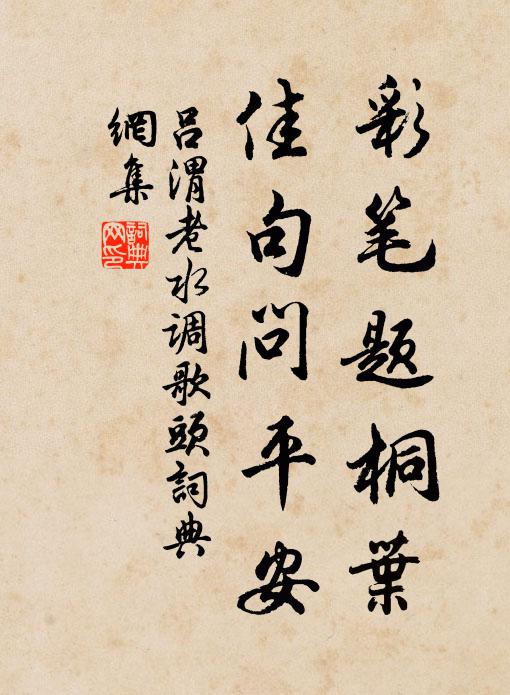 彩笔题桐葉
佳句问平安
吕渭老水调歌頭詞典
網集
詞典
网印